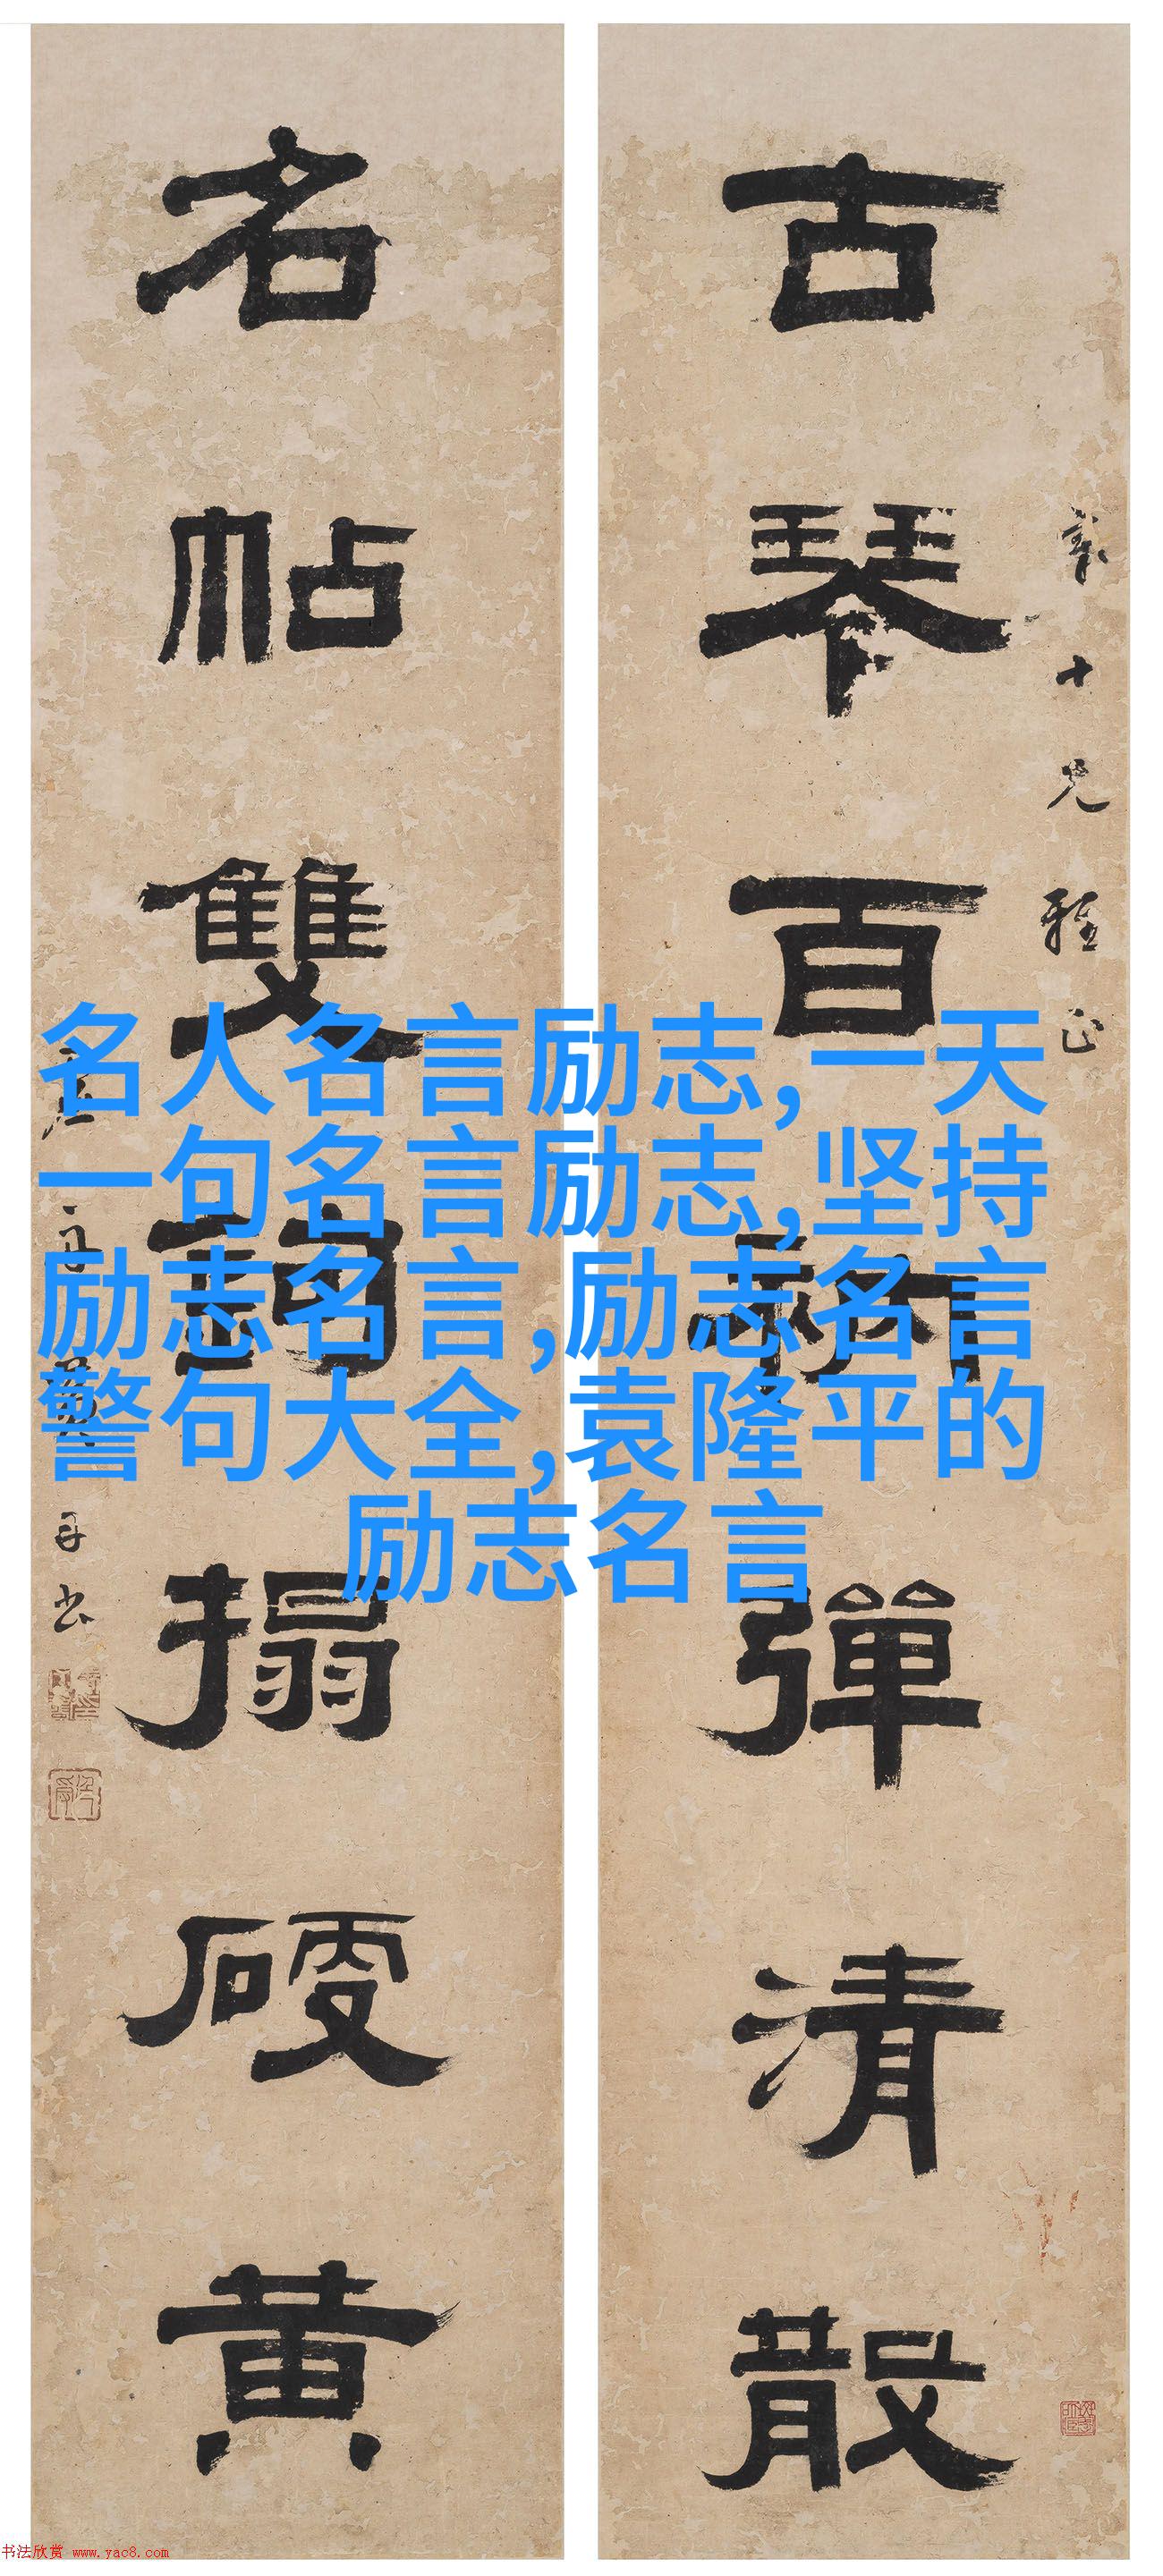 古琴百衲彈清散
十兄雅正
名帖雙鉤搨硬黃
名人名言励志,一天
一句名言励志,坚持
励志名言,励志名言
警句大全,袁隆平的
励志名言
书法欣赏 www.yac8.com